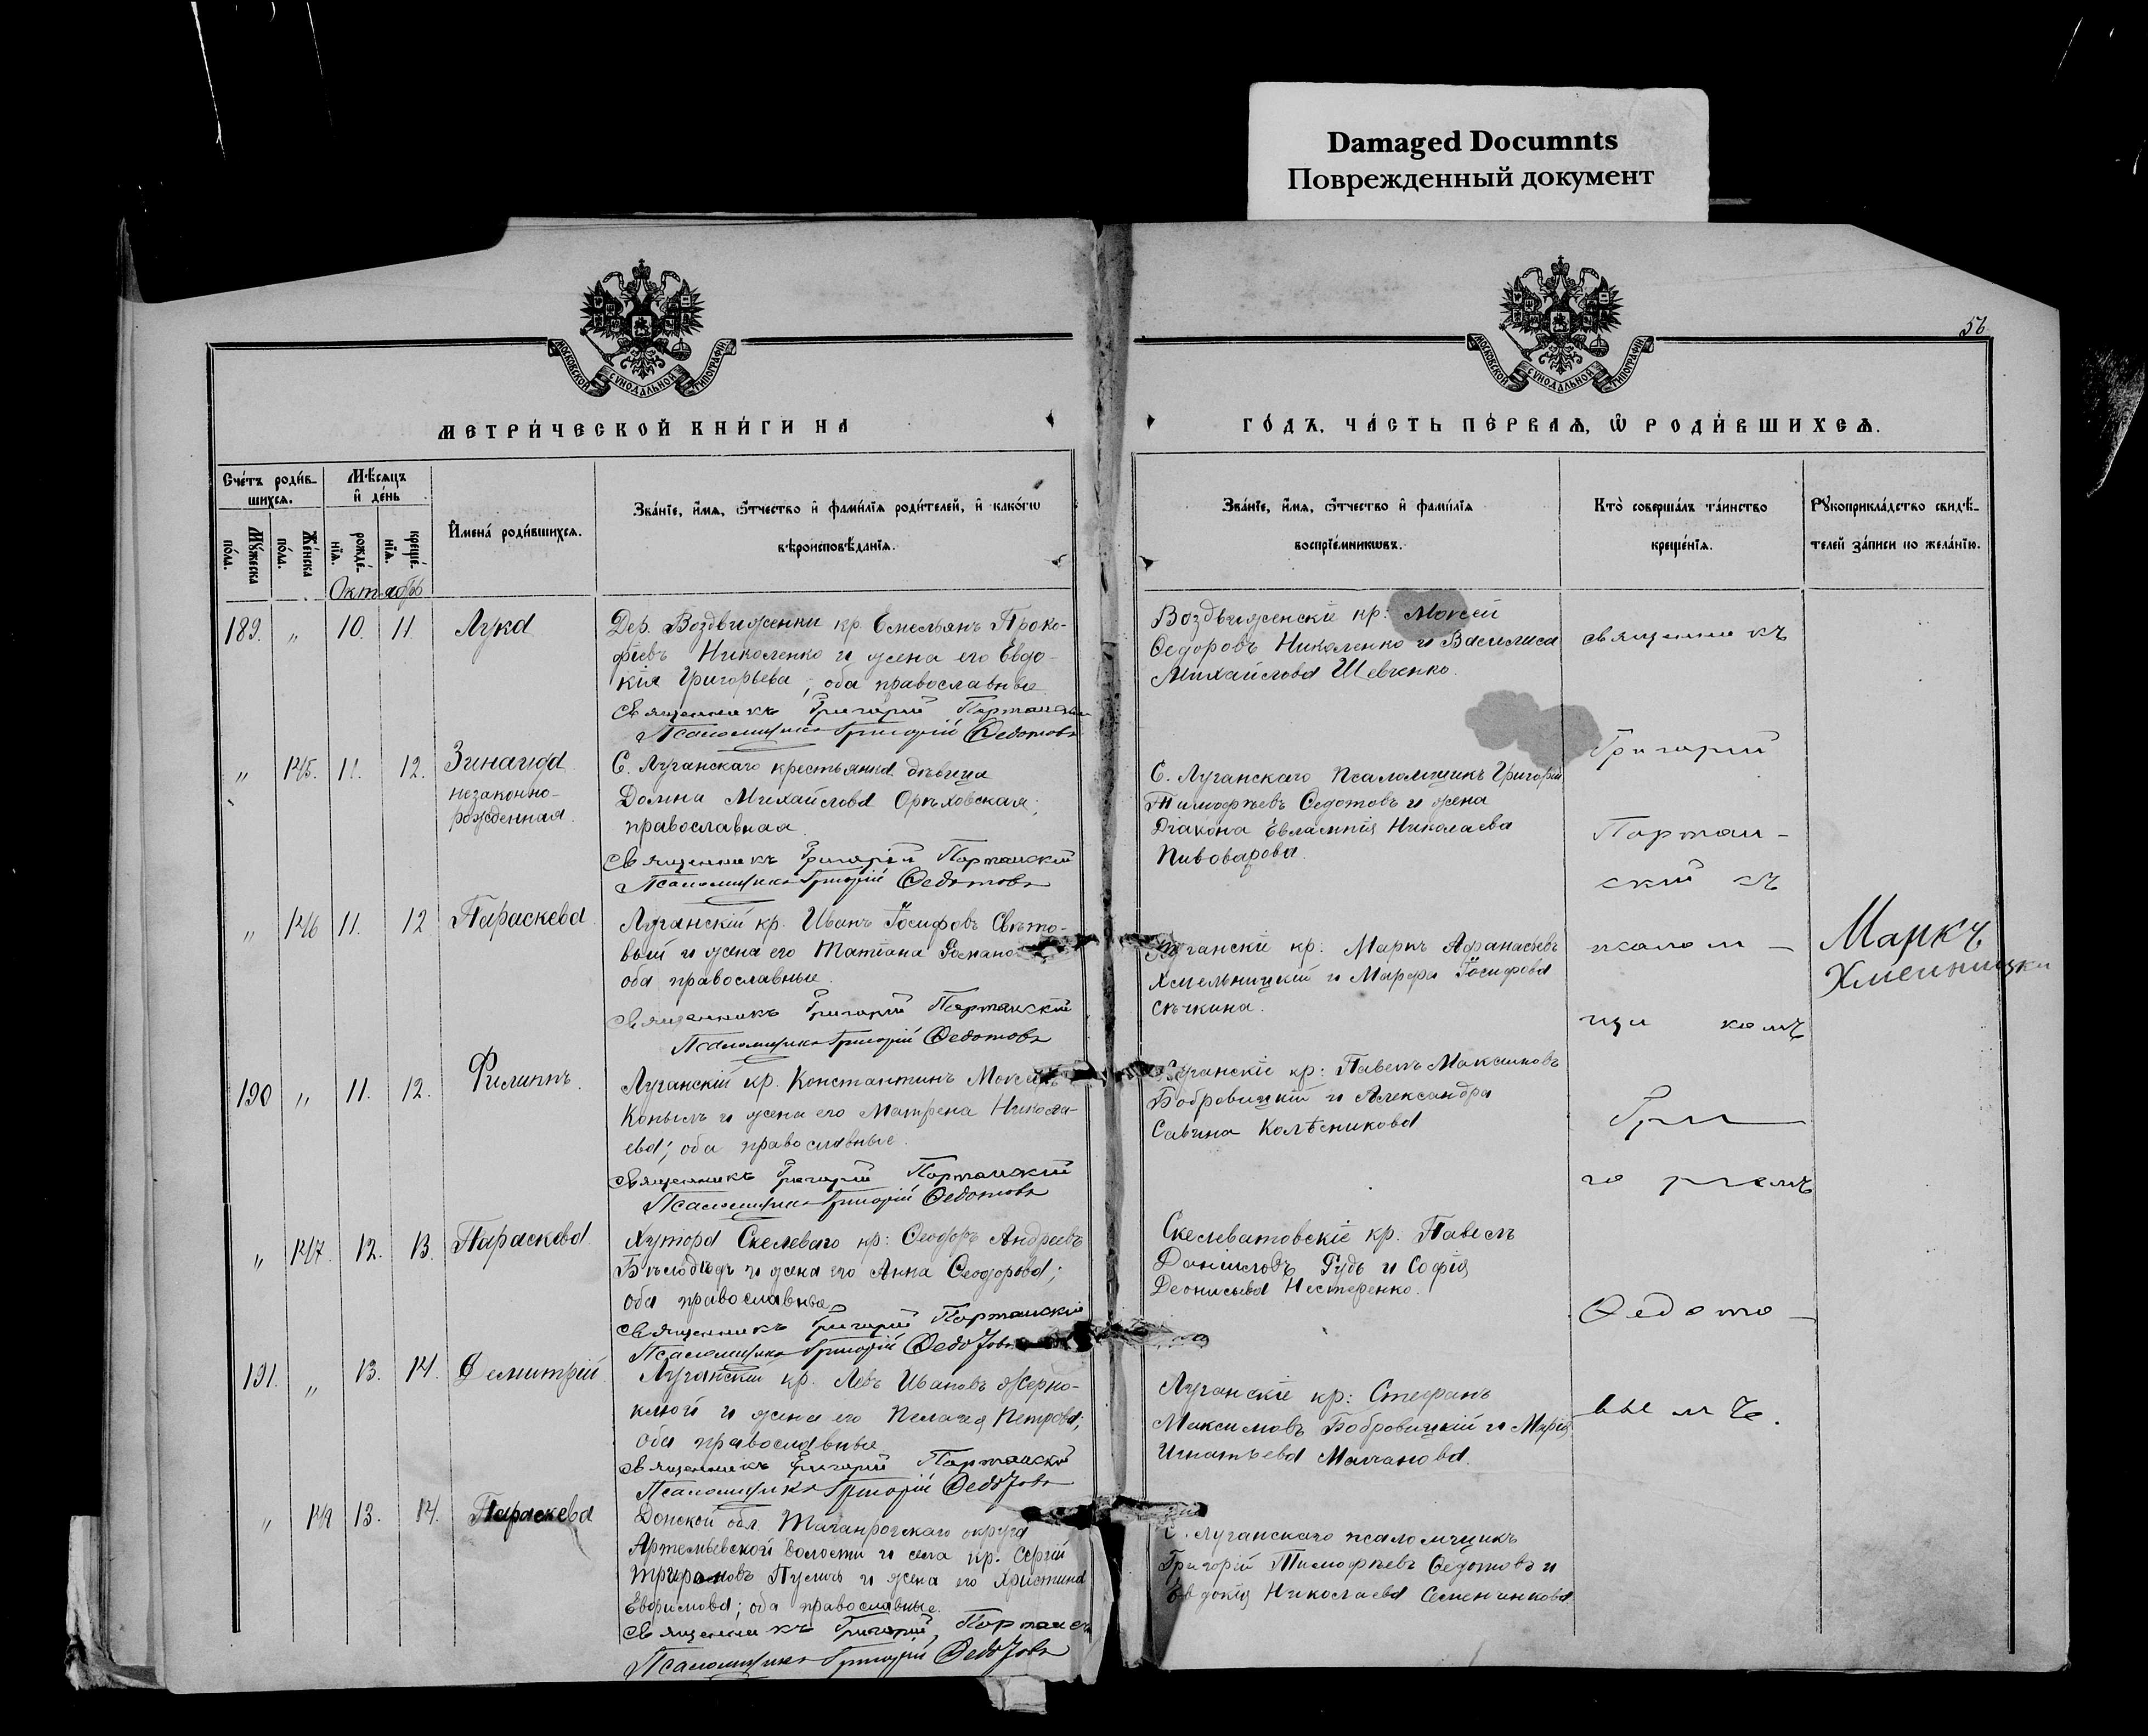 Damaged Documnts
Поврежденный документ
МОСКОВСКОЙ СѴНОДАЛЬНОЙ ТИПОГРАФІИ
МОСКОВСКОЙ СѴНОДАЛЬНОЙ ТИПОГРАФІИ
56
МЕТРИ́ЧЕСКОЙ КНИ́ГИ НА
ГО́ДЪ, ЧА́СТЬ ПЕ́РВАѦ, Ѽ РОДИ́ВШИХСѦ.
Сче́тъ роди́в-
шихсѧ.
Мѣ́сѧцъ
и҆ де́нь
Мꙋ́жеска
по́ла.
Же́нска
по́ла.
рожде́-
нїѧ.
креще́-
нїѧ.
И҆мена̀ роди́вшихсѧ.
Зва́нїе, и҆́мѧ, ѻ҆́тчество и҆ фами́лїѧ роди́телей, и҆ како́гѡ
вѣроисповѣ́данїѧ.
Зва́нїе, и҆́мѧ, ѻ҆́тчество и҆ фами́лїѧ
воспрїе́мникѡвъ.
Кто̀ соверша́лъ та́инство
креще́нїѧ.
Рꙋкоприкла́дство свидѣ́-
телей за́писи по жела́нїю.
Октябрь
189. " 10. 11. Лука
Дер. Воздвиженки кр. Емельянъ Проко-
фіевъ Николенко и жена его Евдо-
кія Григорьева; оба православные
Священникъ Григорій
Псаломщикъ Григорій Федотовъ
Воздвиженскіе кр: Моисей
Ѳедоровъ Николенко и Василиса
Михайлова Шевченко.
" 145. 11. 12. Зинаида
незаконно-
рожденная.
С. Луганскаго крестьянка девица
Домна Михайлова Орѣховская;
православная.
Священникъ Григорій Портанскій
Псаломщикъ Григорій Федотовъ
С. Луганскаго Псаломщикъ Григорій
Тимофѣевъ Ѳедотовъ и жена
Діакона Евлампія Николаева
Пивоварова.
" 146 11. 12 Параскева
Луганскій кр. Иванъ Іосифовъ Свѣто-
вый и жена его Татіана
оба православные.
Священникъ Григорій Портанскій
Псаломщикъ Григорій Федотовъ
Луганскіе кр: Маркъ Афанасьевъ
Хмельницкій и Марфа Іосифова
Сѣчкина.
190 " 11. 12. Филиппъ.
Луганскій кр. Константинъ
Копылъ и жена его Матрена Никола-
ева; оба православные.
Священникъ Григорій Портанскій
Псаломщикъ Григорій Федотовъ
Луганскіе кр: Павелъ Максимовъ
Бобровицкій и Александра
Савина Колѣсникова
" 147. 12. 13. Параскева
Хутора Скелеваго кр: Ѳеодоръ Андреевъ
Бѣлодѣдъ и жена его Анна Ѳеодорова;
оба православные
Священникъ Григорій Портанскій
Псаломщикъ Григорій Федотовъ
Скелеватовскіе кр. Павелъ
Даниловъ Гудь и Софія
Деонисьева Нестеренко.
191. " 13. 14. Димитрій
Луганскій кр. Левъ Ивановъ Жерно-
клюй и жена его Пелагея Петрова;
оба православные
Священникъ Григорій Портанскій
Псаломщикъ Григорій Федотовъ
Луганскіе кр: Стефанъ
Максимовъ Бобровицкій и Марія
Игнатьева
" 13. 14. Параскева
Донской обл. Таганрогскаго округа
Артемьевской волости и села кр. Сергій
и жена его Христина
Евфимова; оба православные.
Священникъ Григорій
Псаломщикъ Григорій Федотовъ
С. Луганскаго псаломщикъ
Григорій Тимофѣевъ Ѳедотовъ и
Евдокія Николаева Семенчикова
священникъ
Григорій
Портан-
скій съ
псалом-
щикомъ
Гри-
горіемъ
Ѳедото-
вымъ.
Маркъ
Хмельницки